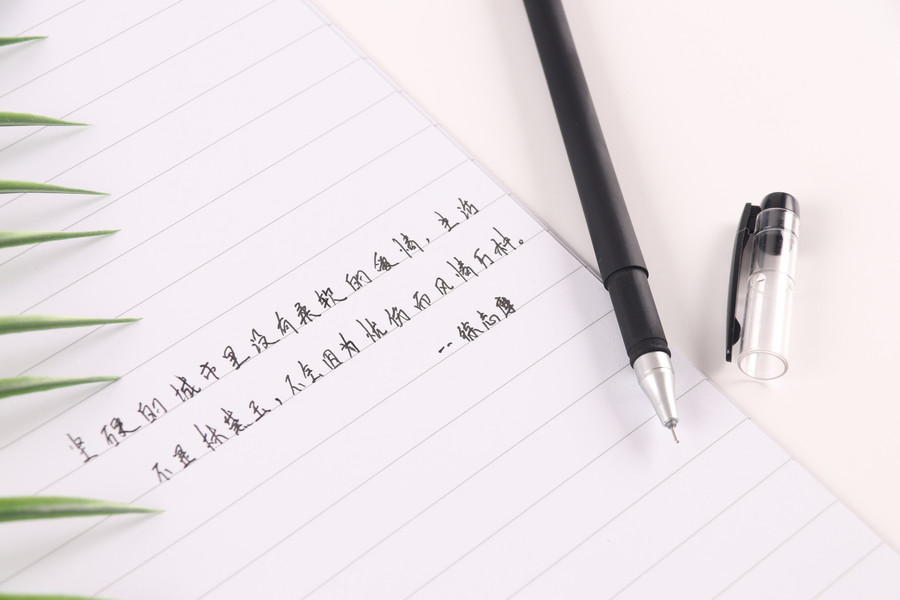 坚硬的城市里没有柔软的爱情，生活
不是林黛玉，不会因为忧伤而风情万种。
--徐志摩